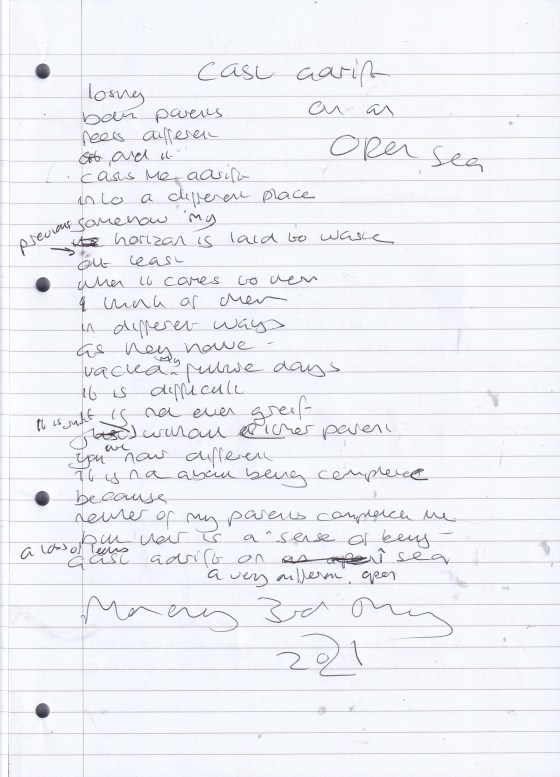 cast adrift
on an
open sea
losing
both parents
feels different
and it
casts me adrift
into a different place
somehow my
previous horizon is laid to waste
at least
when it comes to them
I think of them
in different ways
as they have
my future days
it is difficult
It is not even greif
It is just without either parent
you are now different
it is not about being complete
because
neither of my parents complete me
but now is a sense of being
a loss of
cast adrift on a very different, open sea
Monday 3rd May
2021